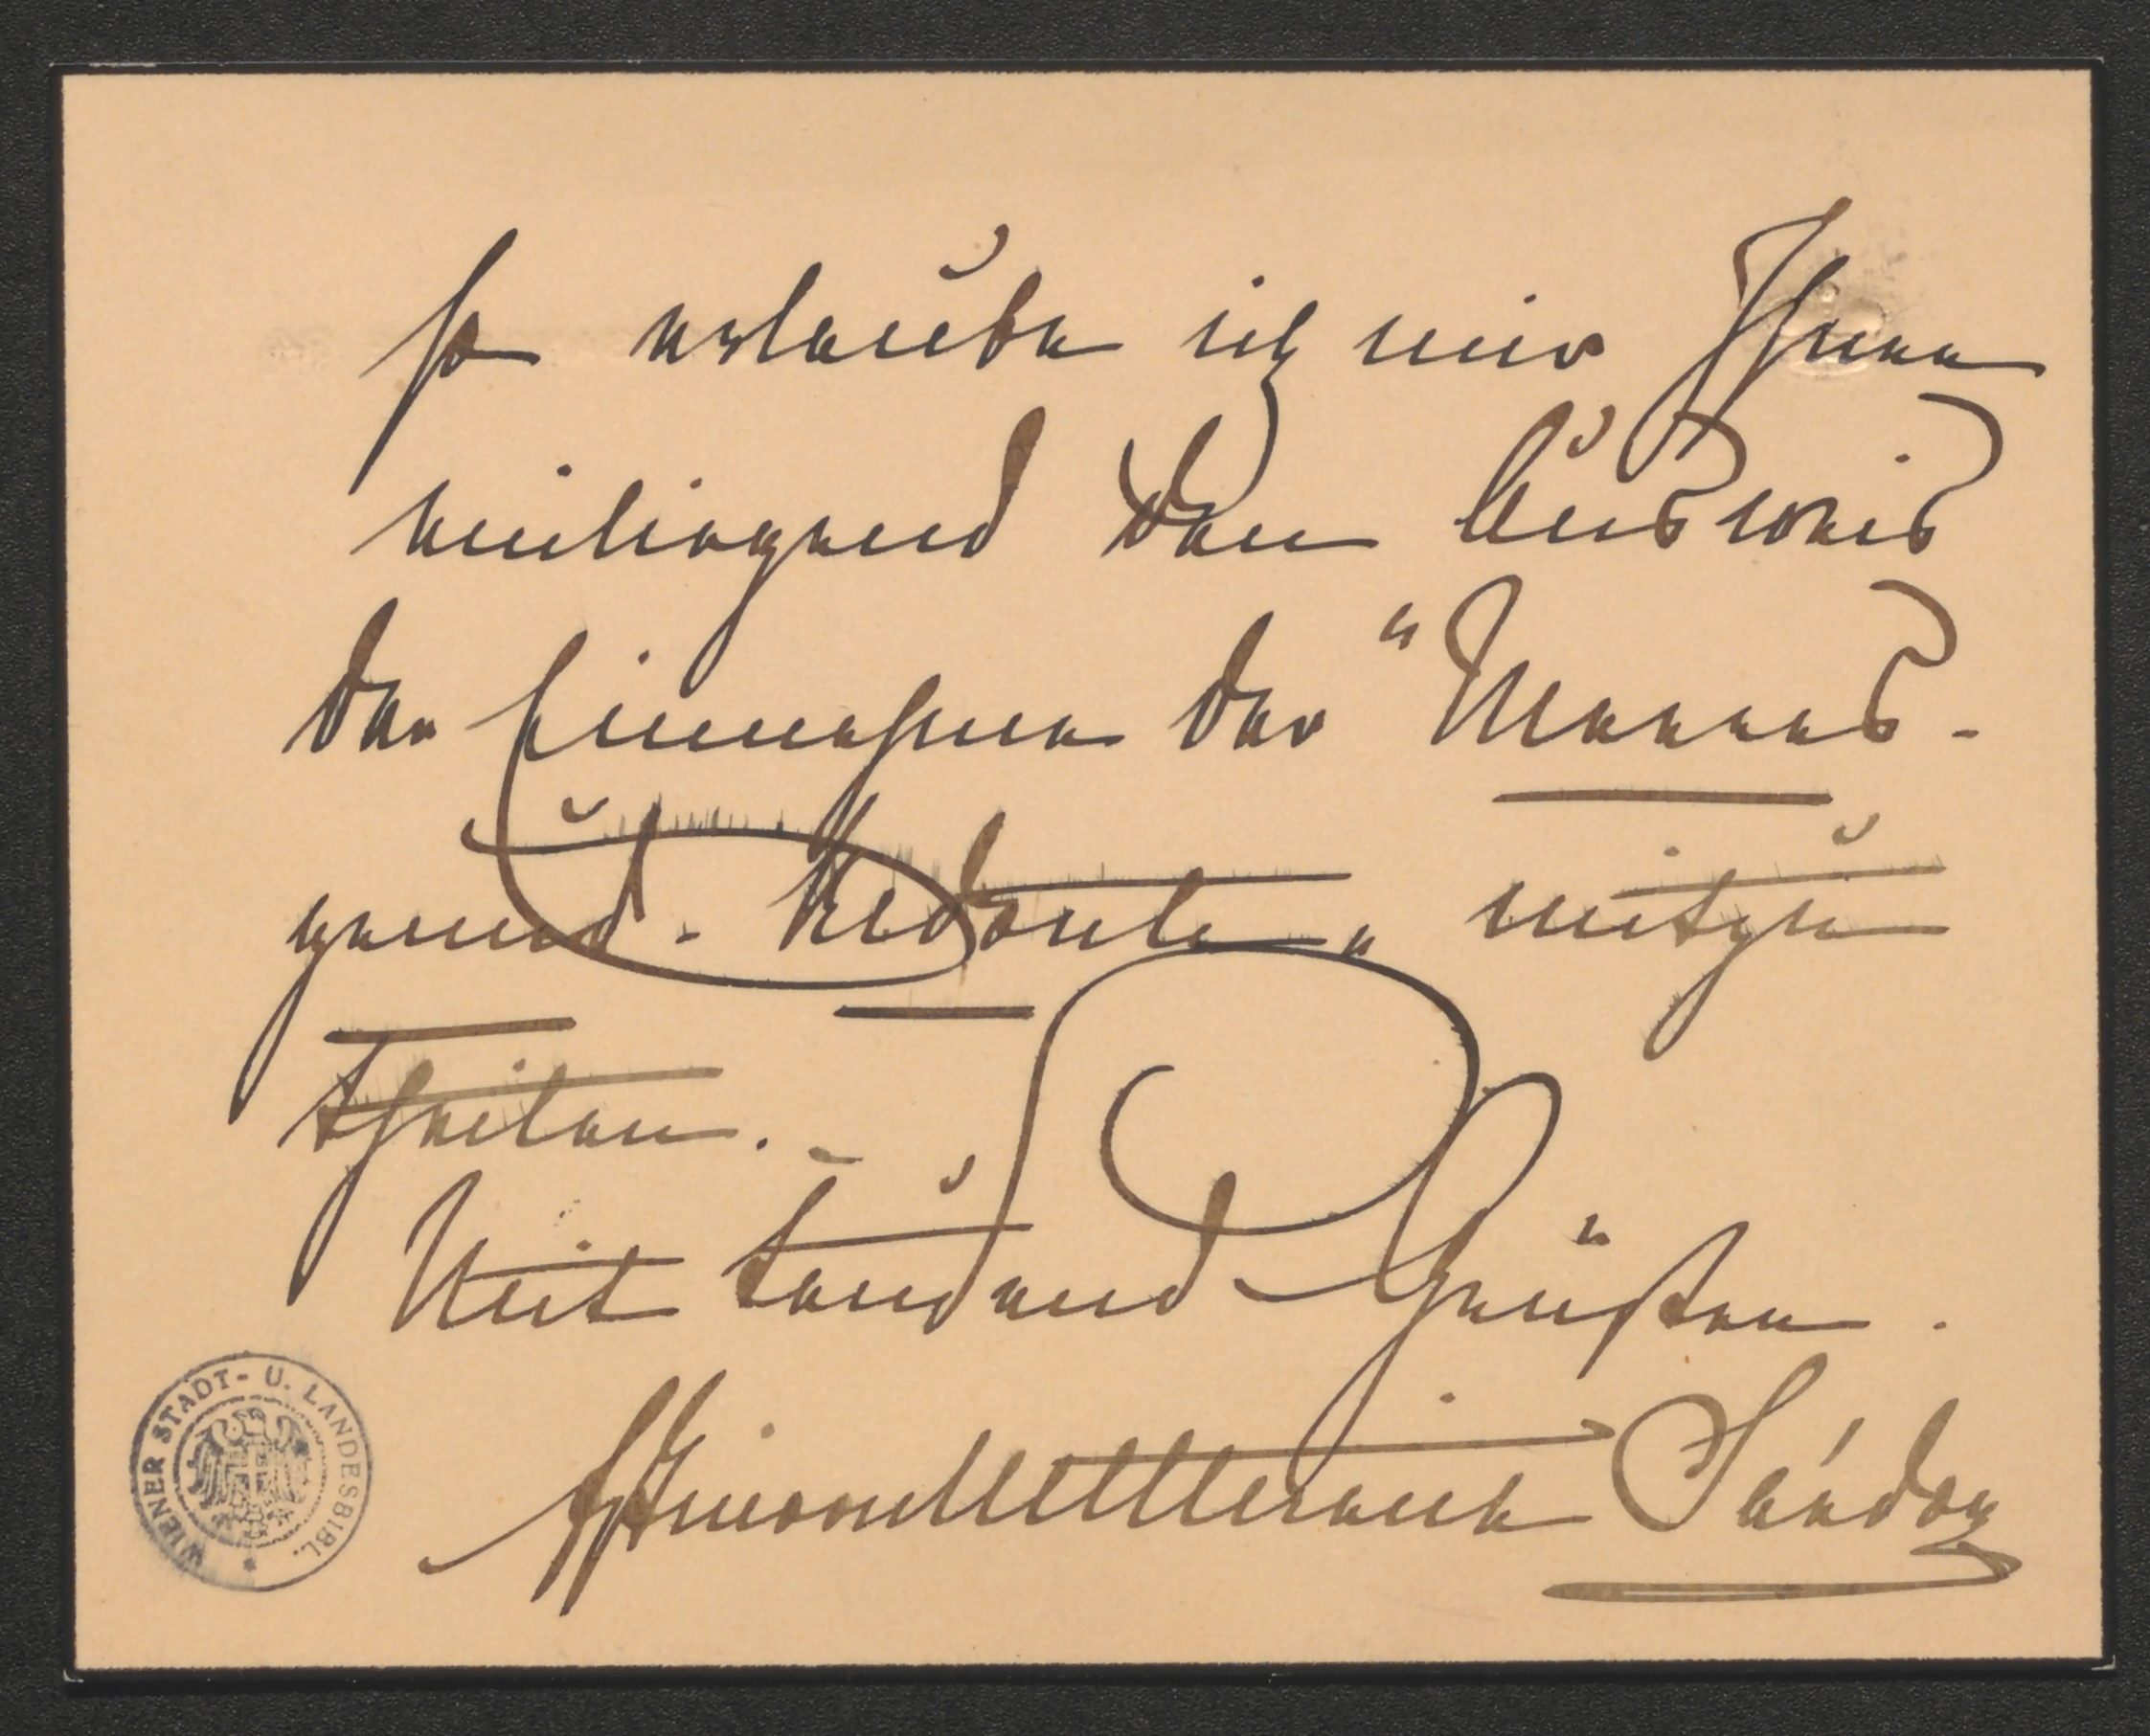 so erlaube ich mir Ihnen
einliegend den Ausweis
der Einnahmen der "Meeres-
grund-Redoute" mitzu
theilen. –
Mit tausend Grüßen.
Metternich Sándor
WIENER STADT- U. LANDESBIBL.